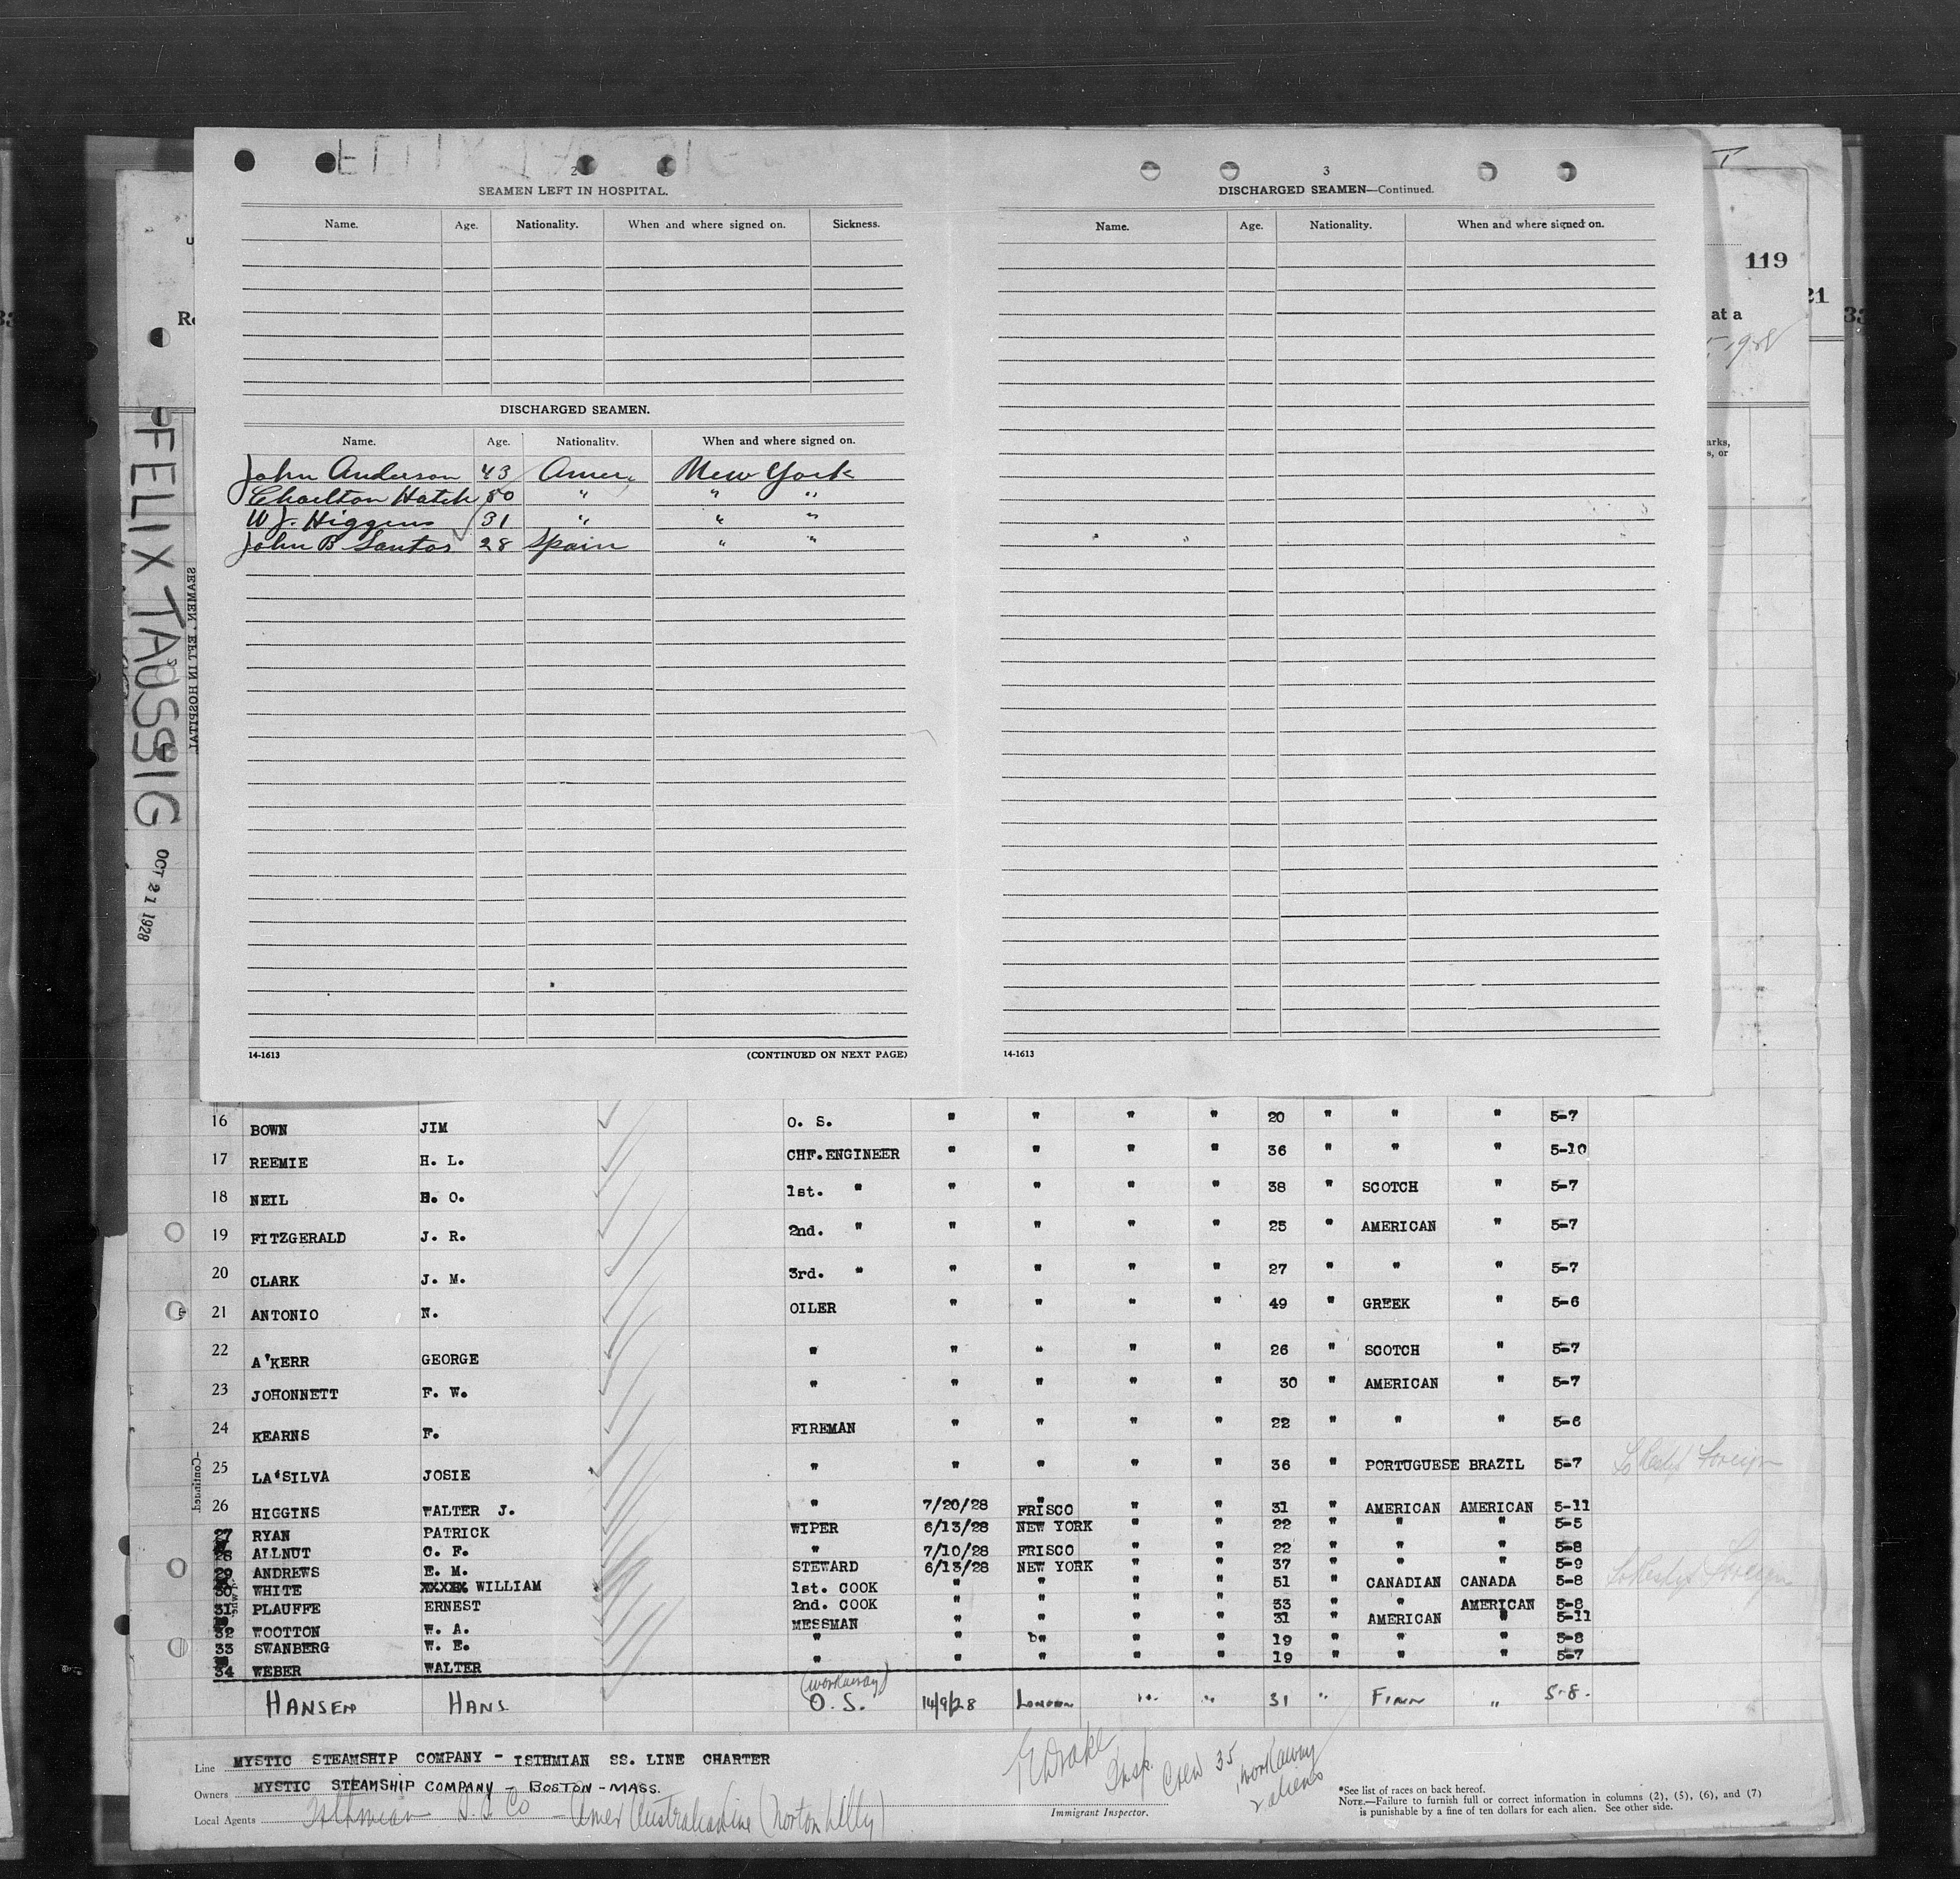 2
SEAMEN LEFT IN HOSPITAL.
Name. Age. Nationality. When and where signed on. Sickness.
DISCHARGED SEAMEN.
Name. Age. Nationality. When and where signed on.
John Anderson 43 Amer. New York
Charlton Hatch 50 " " "
W J. Higgens 31 " " "
John B Santos 28 Spain " "
14-1613 (CONTINUED ON NEXT PAGE)
3
DISCHARGED SEAMEN—Continued.
Name. Age. Nationality. When and where signed on.
14-1613
119
21
33
at a
1928
FELIX TAUSSIG
OCT 21 1928
SEAMEN LEFT IN HOSPITAL
16 BOWN JIM O. S. " " " " 20 " " " 5-7
17 REEMIE H. L. CHF.ENGINEER " " " " 36 " " " 5-10
18 NEIL H. O. 1st. " " " " " 38 " SCOTCH " 5-7
19 FITZGERALD J. R. 2nd. " " " " " 25 " AMERICAN " 5-7
20 CLARK J. M. 3rd. " " " " " 27 " " " 5-7
21 ANTONIO N. OILER " " " " 49 " GREEK " 5-6
22 A'KERR GEORGE " " " " " 26 " SCOTCH " 5-7
23 JOHONNETT F. W. " " " " " 30 " AMERICAN " 5-7
24 KEARNS F. FIREMAN " " " " 22 " " " 5-6
25 LA'SILVA JOSIE " " " " " 36 " PORTUGUESE BRAZIL 5-7
26 HIGGINS WALTER J. " 7/20/28 FRISCO " " 31 " AMERICAN AMERICAN 5-11
27 RYAN PATRICK WIPER 6/13/28 NEW YORK " " 22 " " " 5-5
28 ALLNUT C. F. " 7/10/28 FRISCO " " 22 " " " 5-8
29 ANDREWS E. M. STEWARD 6/13/28 NEW YORK " " 37 " " " 5-9
30 WHITE XXXXX WILLIAM 1st. COOK " " " " 51 " CANADIAN CANADA 5-8
31 PLAUFFE ERNEST 2nd. COOK " " " " 33 " " AMERICAN 5-8
32 WOOTTON W. A. MESSMAN " " " " 31 " AMERICAN " 5-11
33 SWANBERG W. E. " " " " " 19 " " " 5-8
34 WEBER WALTER " " " " " 19 " " " 5-7
(workaway)
HANSEN HANS O. S. 14/9/28 LONDON " " 31 " FINN " 5-8.
—Continued.
Line MYSTIC STEAMSHIP COMPANY - ISTHMIAN SS. LINE CHARTER
Owners MYSTIC STEAMSHIP COMPANY - BOSTON - MASS.
Local Agents Isthmian S.S. Co - Amer Australian Line (Norton Lilly)
Drake Insp. Crew 35, workaway
2 aliens
Immigrant Inspector.
*See list of races on back hereof.
NOTE.—Failure to furnish full or correct information in columns (2), (5), (6), and (7)
is punishable by a fine of ten dollars for each alien. See other side.